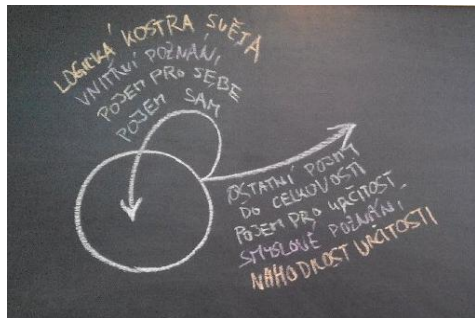 LOGICKÁ KOSTRA SVĚTA
VNITŘNÍ POZNÁNÍ
POJEM PRO SEBE
POJEM SÁM
OSTATNÍ POJMY
DO CELKOVOSTI
POJEM PRO URČITOST
SMYSLOVÉ POZNÁNÍ
NÁHODNOST URČITOSTI